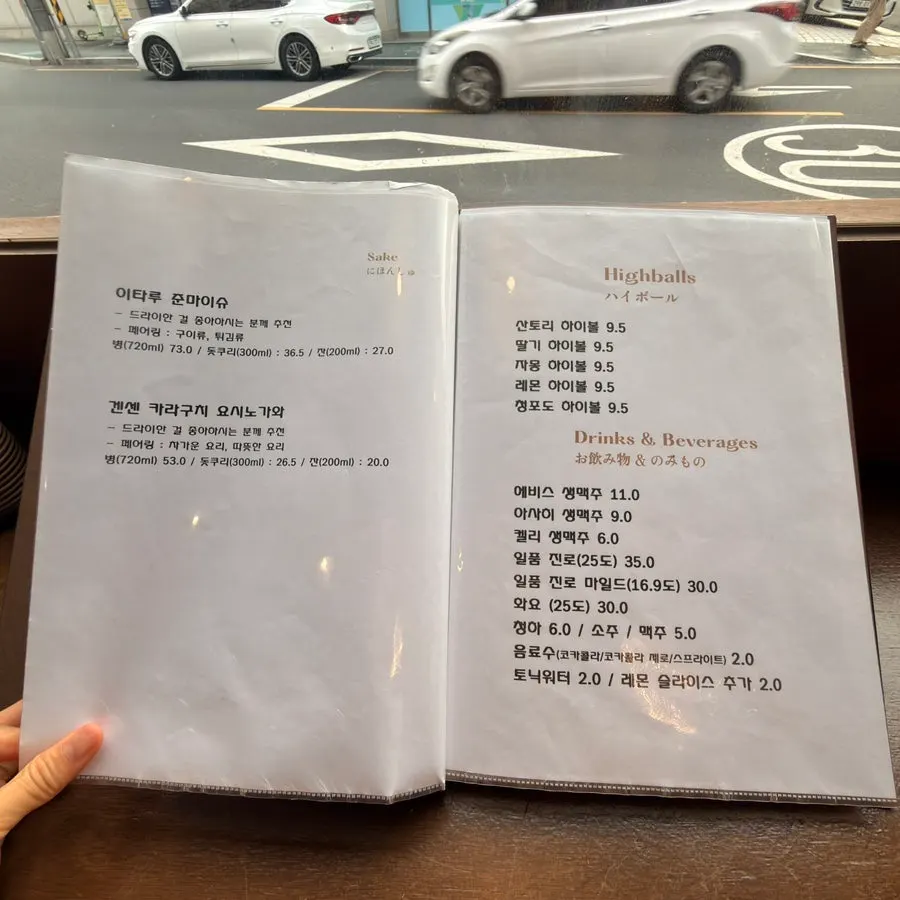 Sake
にほんしゅ
이타루 준마이슈
- 드라이한 걸 좋아하시는 분께 추천
- 페어링 : 구이류, 튀김류
병(720ml) 73.0 / 돗쿠리(300ml) : 36.5 / 잔(200ml) : 27.0
겐센 카라구치 요시노가와
- 드라이한 걸 좋아하시는 분께 추천
- 페어링 : 차가운 요리, 따뜻한 요리
병(720ml) 53.0 / 돗쿠리(300ml) : 26.5 / 잔(200ml) : 20.0
Highballs
ハイボール
산토리 하이볼 9.5
딸기 하이볼 9.5
자몽 하이볼 9.5
레몬 하이볼 9.5
청포도 하이볼 9.5
Drinks & Beverages
お飲み物 & のみもの
에비스 생맥주 11.0
아사히 생맥주 9.0
켈리 생맥주 6.0
일품 진로(25도) 35.0
일품 진로 마일드(16.9도) 30.0
화요 (25도) 30.0
청하 6.0 / 소주 / 맥주 5.0
음료수(코카콜라/코카콜라 제로/스프라이트) 2.0
토닉워터 2.0 / 레몬 슬라이스 추가 2.0
30